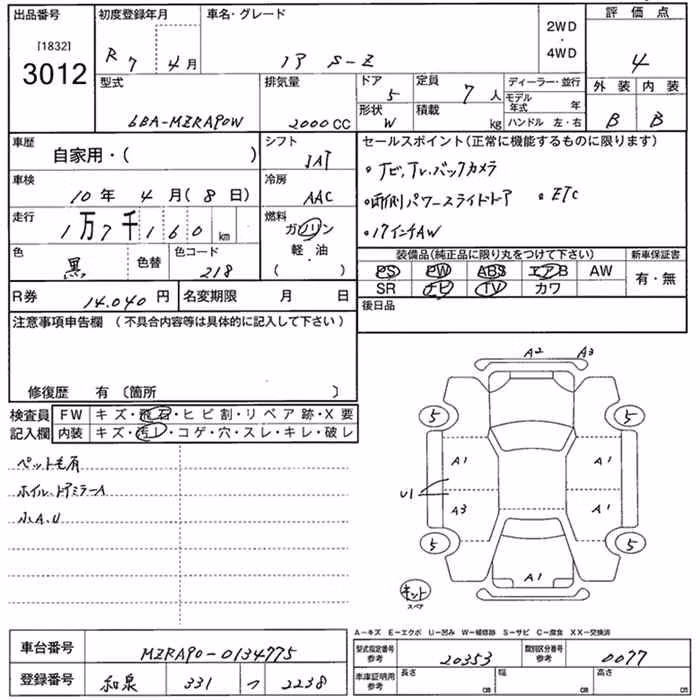 出品番号 初度登録年月 車名・グレード 2WD・4WD 評価点
[1832]
3012
R7 4月
S-Z
4
外装 内装
B B
型式 排気量 ドア 定員 ディーラー・並行
5 7人
モデル年式 年
形状 積載
W kg
ハンドル 左・右
6BA-MZRA90W 2000CC
車歴 シフト セールスポイント(正常に機能するものに限ります)
自家用・( )
・ナビ,TV.バックカメラ
車検 冷房
10年 4月(8日) AAC
・両側パワースライドドア ・ETC
走行 燃料
1万7千160km
ガソリン
・17インチAW
軽・油
( )
色 色替 色コード
黒 218
装備品(純正品に限り丸をつけて下さい) 新車保証書
PS PW ABS エアB AW 有・無
SR ナビ TV カワ
R券 14.040円 名変期限 月 日
後日品
注意事項申告欄 (不具合内容等は具体的に記入して下さい)
修復歴 有〔箇所 〕
検査員 FW キズ・飛石・ヒビ割・リペア跡・X要
記入欄 内装 キズ・汚レ・コゲ・穴・スレ・キレ・破レ
ペット毛有
ホイル、ドアミラーA
小A.U
A2 A3
5 5
A1 A1
U1
A3 A1
5 5
A1
キット
スペア
A-キズ E-エクボ U-凹み W-補修跡 S-サビ C-腐食 XX-交換済
車台番号 MZRA90-0134775
型式指定番号 参考 20353 類別区分番号 参考 0077
登録番号 和泉 331 つ 2238
車庫証明用 参考 長さ cm 幅 cm 高さ cm